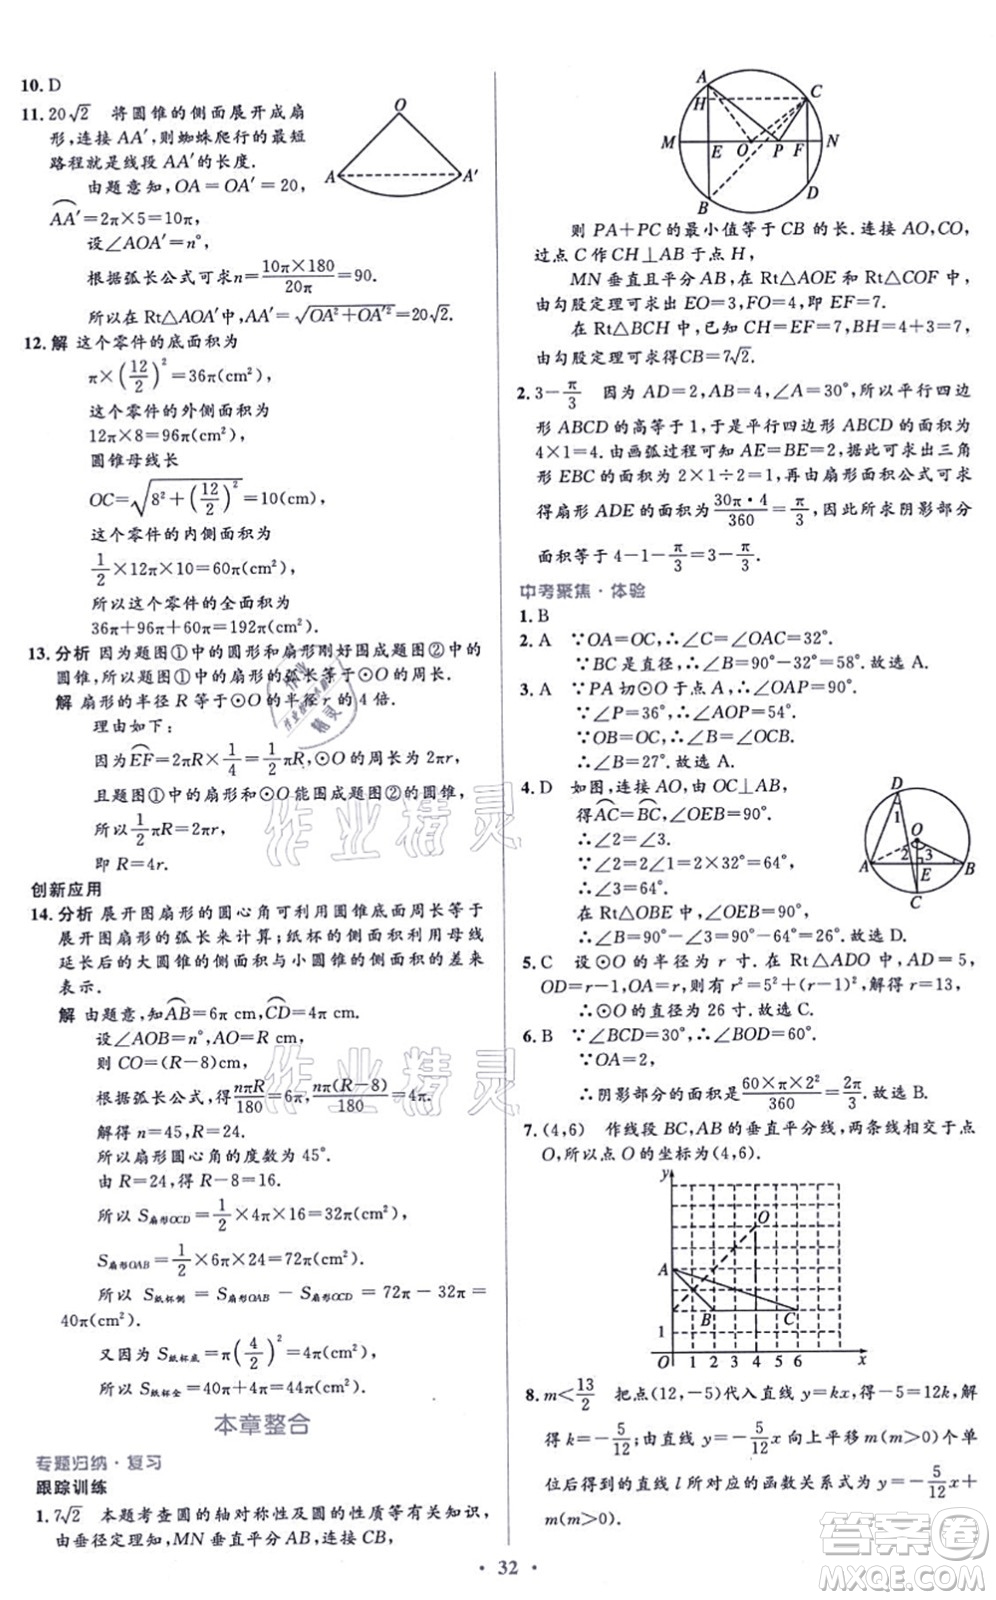 10. D
11. 20√2 将圆锥的侧面展开成扇
形,连接 AA′,则蜘蛛爬行的最短
路程就是线段 AA′的长度.
由题意知,OA=OA′=20,
AA′=2π×5=10π,
设∠AOA′=n°,
根据弧长公式可求n=10π×180/20π=90.
所以在 Rt△AOA′中,AA′=√(OA²+OA′²)=20√2.
O
A
A′
12. 解 这个零件的底面积为
π×(12/2)²=36π(cm²),
这个零件的外侧面积为
12π×8=96π(cm²),
圆锥母线长
OC=√(8²+(12/2)²)=10(cm),
这个零件的内侧面积为
1/2×12π×10=60π(cm²),
所以这个零件的全面积为
36π+96π+60π=192π(cm²).
13. 分析 因为题图①中的圆形和扇形刚好围成题图②中的
圆锥,所以题图①中的扇形的弧长等于⊙O的周长.
解 扇形的半径 R 等于⊙O的半径 r 的 4 倍.
理由如下:
因为EF=2πR×1/4=1/2πR,⊙O的周长为2πr,
且题图①中的扇形和⊙O能围成题图②中的圆锥,
所以1/2πR=2πr.
即 R=4r.
创新应用
14. 分析 展开图扇形的圆心角可利用圆锥底面周长等于
展开图扇形的弧长来计算;纸杯的侧面积利用母线
延长后的大圆锥的侧面积与小圆锥的侧面积的差来
表示.
解 由题意,知AB=6π cm,CD=4π cm.
设∠AOB=n°,AO=R cm,
则 CO=(R-8)cm,
根据弧长公式,得nπR/180=6π,nπ(R-8)/180=4π.
解得 n=45,R=24.
故扇形圆心角的度数为 45°.
由 R=24,得 R-8=16.
所以 S扇形OCD=1/2×4π×16=32π(cm²),
S扇形OAB=1/2×6π×24=72π(cm²).
所以 S纸杯侧=S扇形OAB-S扇形OCD=72π-32π=
40π(cm²).
又因为 S纸杯底=π(4/2)²=4π(cm²),
所以 S纸杯全=40π+4π=44π(cm²).
本章整合
专题归纳·复习
跟踪训练
1. 7√2 本题考查圆的轴对称性及圆的性质等有关知识,
由垂径定理知,MN 垂直平分 AB,连接 CB,
A
H
C
M
E
O
P
F
N
B
D
则 PA+PC 的最小值等于 CB 的长.连接 AO,CO,
过点 C 作 CH⊥AB 于点 H,
MN 垂直且平分 AB,在 Rt△AOE 和 Rt△COF 中,
由勾股定理可求出 EO=3,FO=4,即 EF=7.
在 Rt△BCH 中,已知 CH=EF=7,BH=4+3=7,
由勾股定理可求得CB=7√2.
2. 3-π/3 因为 AD=2,AB=4,∠A=30°,所以平行四边
形 ABCD 的高等于 1,于是平行四边形 ABCD 的面积为
4×1=4.由画弧过程可知 AE=BE=2,据此可求出三角
形 EBC 的面积为 2×1÷2=1,再由扇形面积公式可求
得扇形 ADE 的面积为30π·4/360=π/3,因此所求阴影部分
面积等于 4-1-π/3=3-π/3.
中考聚焦·体验
1. B
2. A ∵OA=OC,∴∠C=∠OAC=32°.
∵BC是直径,∴∠B=90°-32°=58°.故选 A.
3. A ∵PA切⊙O于点 A,∴∠OAP=90°.
∵∠P=36°,∴∠AOP=54°.
∵OB=OC,∴∠C=∠B.
∴∠B=27°.故选 A.
4. D 如图,连接 AO,由 OC⊥AB,
得AC=BC,∠OEB=90°.
∴∠2=∠3.
∵∠2=2∠1=2×32°=64°.
∴∠3=64°.
在 Rt△OBE 中,∠OEB=90°,
∴∠B=90°-∠3=90°-64°=26°.故选 D.
D
1
O
2
3
A
E
B
C
5. C 设⊙O的半径为 r 寸.在 Rt△ADO 中,AD=5,
OD=r-1,OA=r,则有 r²=5²+(r-1)²,解得 r=13,
∴⊙O的直径为 26 寸.故选 C.
6. B ∵∠BCD=30°,∴∠BOD=60°.
∵OA=2,
∴阴影部分的面积是60×π×2²/360=2π/3.故选 B.
7. (4,6) 作线段 BC,AB 的垂直平分线,两条线相交于点
O,所以点 O 的坐标为(4,6).
y
O
A
B
C
1
O 1 2 3 4 5 6 x
8. m<13/2 把点(12,-5)代入直线 y=kx,得-5=12k,解
得 k=-5/12;由 y=-5/12x 向上平移 m(m>0)个单
位后得到的直线 l 所对应的函数关系式为 y=-5/12x+
m(m>0).
• 32 •
作业精灵
作业精灵
答案圈
MXQE.COM